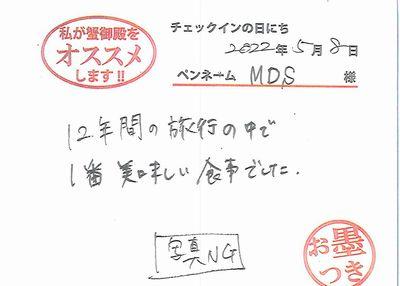 私が蟹御殿を
オススメ
します!!
チェックインの日にち
2022年5月8日
ペンネーム MDS 様
12年間の旅行の中で
1番美味しい食事でした.
写真NG
お墨
つき